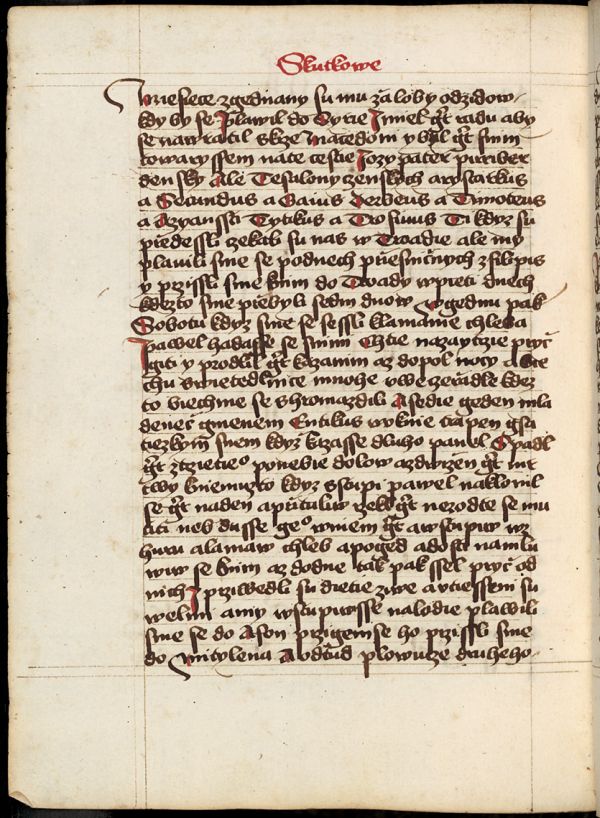 Skutkowe
wriesiece zgednany su mu zaloby odzidow
kdy by se plawil do Syrie Jmiel gt radu aby
se nawratil skze Macedoni y byl gt snim
towaryssem nate cestie Jozypater pirriber
densky Ale Tesalonyczenskych arystarkus
a Secundus a Gaius derbeus a Timoteus
a Azyanssti Tytikus a Trofimus Ti kdyz su
przedessli czekali su nas w Troadie ale my
plawili sme se podnech przesnicznych zfilipis
y przissli sme knim do Troady wpieti dnech
kdezto sme przebyli sedm dnow wgednu pak
Sobotu kdyz sme se sessli klamanie chleba
pawel hadasse se snimi Chtie nazaytrzie prycz
giti y prodlil gt kazanim az dopol nocy a bie
chu swietedlnice mnohe vweczerzadle kdez
to biechme se shromazdili A sedie geden mla
denecz gmenem Eutikus woknie trapen gsa
tiezkym snem kdyz kazasse dluho pawel Spadl
gt ztrzietieo ponebie dolow azdwizen gt mr
twy kniemuzto kdyz sstupi pawel naklonil
se gt naden a przituliw rzekl gt nerodte se mu
titi neb dusse geo wniem gt a wstupiw wz
huru a lamaw chleb a poged a dosti namlu
wiw se knim az dodne tak pak ssel prycz od
nich J przwedli su dietie ziwe a vtiesseni su
welmi a my wstupiwsse nalodie plawili
sme se do Ason przigemse ho przissli sme
do Mitylena A odtud plowucze druheho